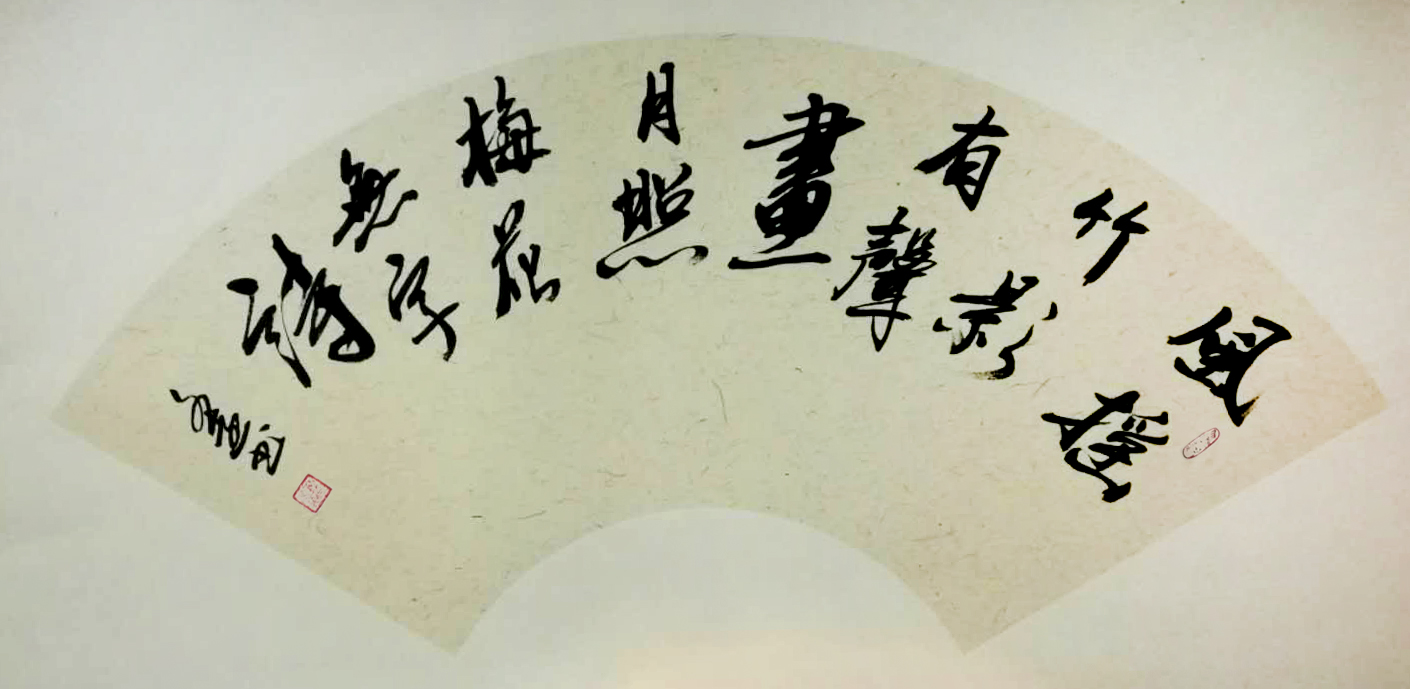 風搖
竹影
有聲
畫
月照
梅花
無字
詩